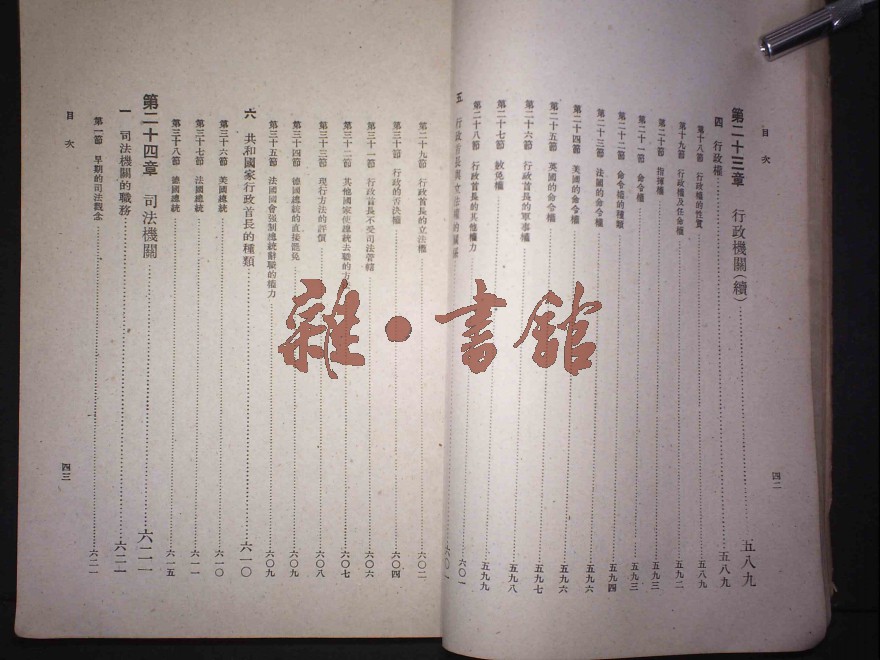 目次
第二十三章 行政機關(續)…………五八九
四 行政權…………五八九
第十八節 行政權的性質…………五八九
第十九節 行政權及任命權…………五九二
第二十節 指揮權…………五九三
第二十一節 命令權…………五九三
第二十二節 命令權的種類…………五九四
第二十三節 法國的命令權…………五九六
第二十四節 美國的命令權…………五九六
第二十五節 英國的命令權…………五九七
第二十六節 行政首長的軍事權…………五九八
第二十七節 赦免權…………五九九
第二十八節 行政首長的其他權力…………六〇一
五 行政首長與立法機的關係
四二
第二十九節 行政首長的立法權…………六〇二
第三十節 行政的否決權…………六〇四
第三十一節 行政首長不受司法管轄…………六〇六
第三十二節 其他國家使總統去職的方…………六〇七
第三十三節 現行方法的評價…………六〇八
第三十四節 德國總統的直接罷免…………六〇九
第三十五節 法國國會強制總統辭職的權力…………六〇九
六 共和國家行政首長的種類…………六一〇
第三十六節 美國總統…………六一〇
第三十七節 法國總統…………六一一
第三十八節 德國總統…………六一五
第二十四章 司法機關…………六二一
一 司法機關的職務…………六二一
第一節 早期的司法觀念…………六二一
目次
四三
雜·書館